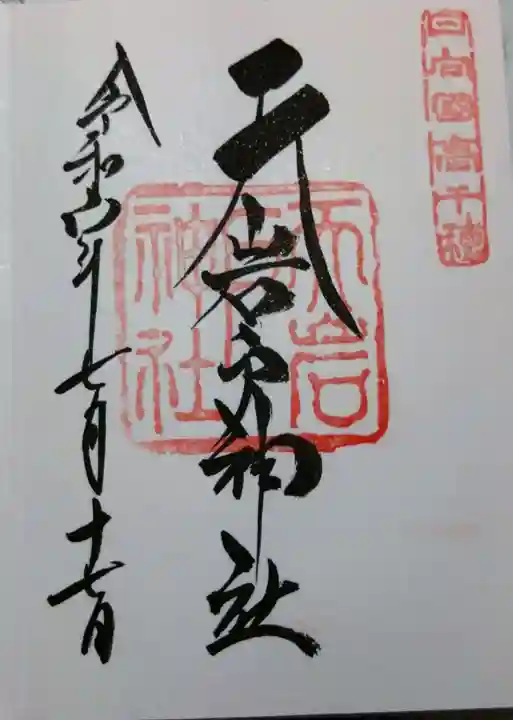 日向国高千穂
天岩戸神社
天岩戸
神社
令和六年七月十七日